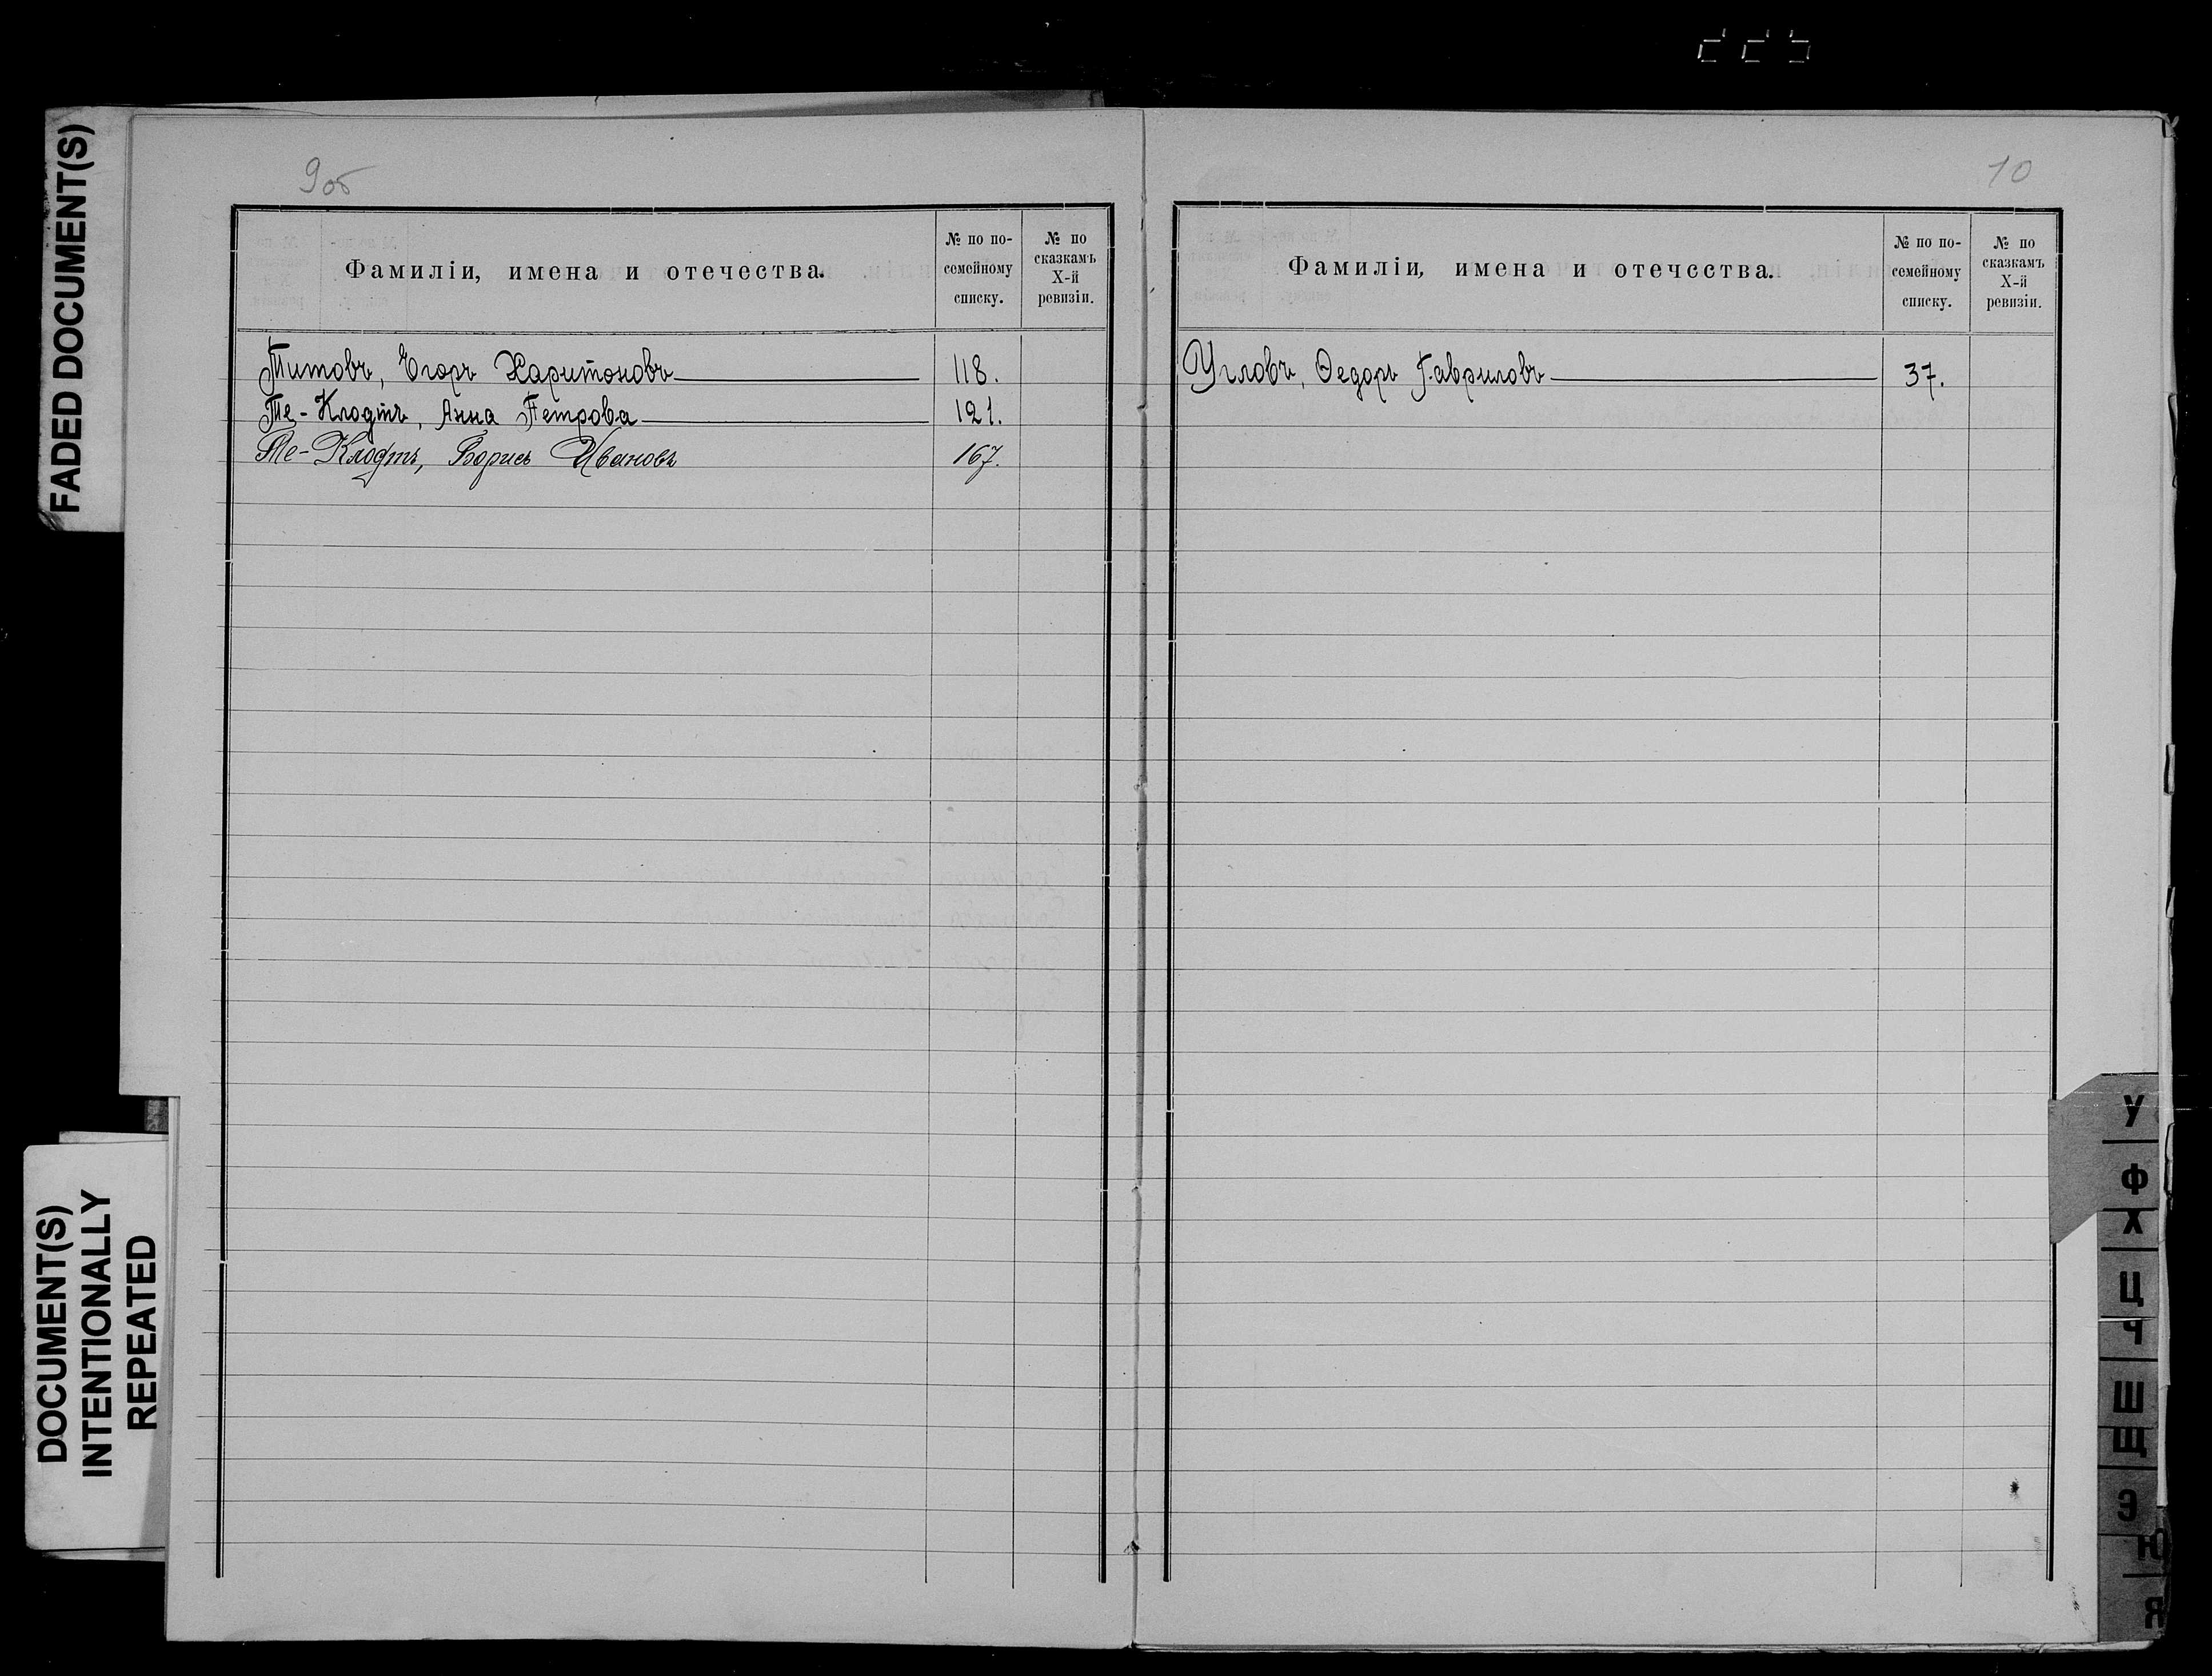 FADED DOCUMENT(S)
DOCUMENT(S)
INTENTIONALLY
REPEATED
9об
Фамиліи, имена и отечества.
№ по по-
семейному
списку.
№ по
сказкамъ
X-й
ревизіи.
Титовъ, Егоръ Харитоновъ 118.
Те-Клодтъ, Анна Петрова 121.
Те-Клодтъ, Борисъ Ивановъ 167.
10
Фамиліи, имена и отечества.
№ по по-
семейному
списку.
№ по
сказкамъ
X-й
ревизіи.
Угловъ, Ѳедоръ Гавриловъ 37.
У
Ф
Х
Ц
Ч
Ш
Щ
Э
Ю
Я